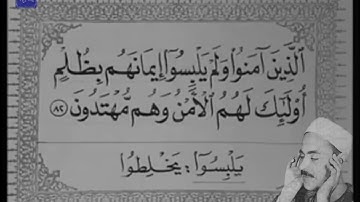 الَّذِينَ آمَنُوا وَلَمْ يَلْبِسُوٓا إِيمَانَهُم بِظُلْمٍ
أُوْلَٰٓئِكَ لَهُمُ الْأَمْنُ وَهُم مُّهْتَدُونَ ٨٢
يَلْبِسُوٓا : يَخْلِطُوا